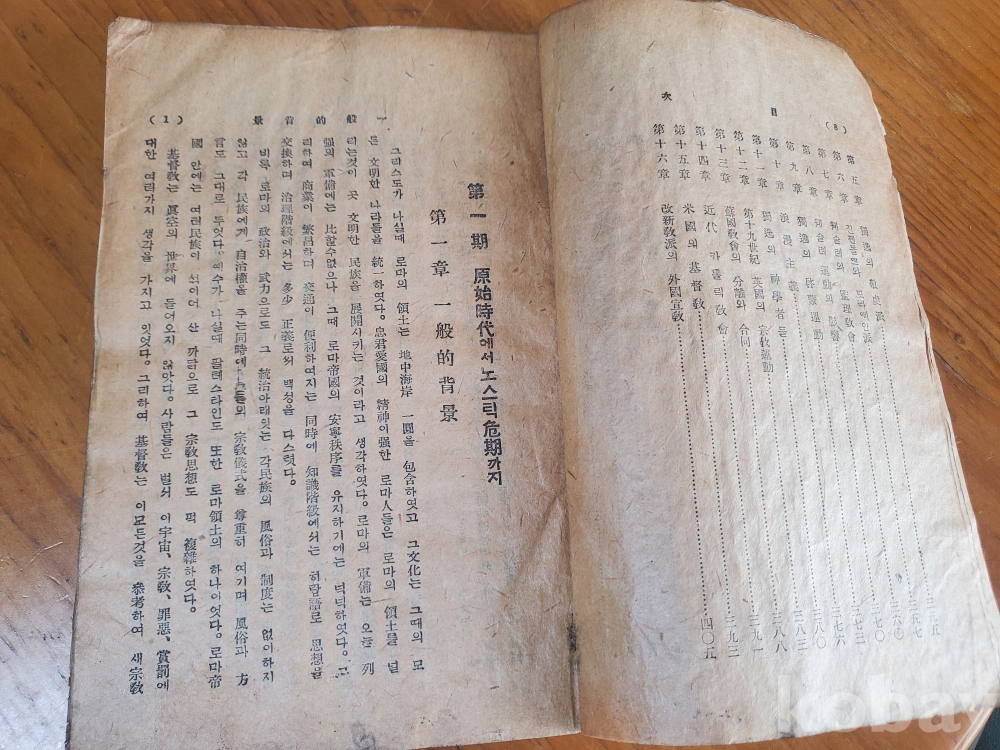 (8)
目 次
第五章 獨逸의 敬虔派 三三五
第六章 진젠돌프와 모라비안派 三五七
第七章 웨슬레의 監理敎會 三六〇
第八章 웨슬레 運動의 影響 三七〇
第九章 獨逸의 啓蒙運動 三七三
第十章 浪漫主義 三七六
第十一章 獨逸의 神學者들 三八〇
第十二章 第十九世紀 英國의 宗敎運動 三八三
第十三章 蘇國敎會의 分離와 合同 三八八
第十四章 近代 카톨릭敎會 三九一
第十五章 米國의 基督敎 三九三
第十六章 改新敎派의 外國宣敎 四〇五
一般的背景 (1)
第一期 原始時代에서 노스틱危期까지
第一章 一般的背景
그리스도가 나실때 로마의 領土는 地中海岸 一圓을 包含하엿고 그文化는 그때의 모
든 文明한 나라들을 統一하엿다。忠君愛國의 精神이强한 로마人들은 로마의 領土를 널
리는것이 곳 文明한 民族을 展開시키는 것이라고 생각하엿다。로마의 軍備는 오늘 列
强의 軍備에는 比할수없으나 그때 로마帝國의 安寧秩序를 維持하기에는 넉넉하엿다。그
리하여 商業이 繁昌하며 交通이 便利하여지는 同時에 知識階級에서는 헤랍語로 思想을
交換하며 治理階級에서는 多少 正義로써 백성을 다스렷다。
비록 로마의 政治와 武力으로도 그 統治아래잇는 各民族의 風俗과 制度는 없이하지
않고 各 民族에게 自治權을 주는同時에 그들의 宗敎儀式을 尊重히 여기며 風俗과 方
言도 그대로 두엇다。예수가 나실때 팔레스타인도 또한 로마領土의 하나이엇다。로마帝
國 안에는 여러民族이 석이어 산 까닭으로 그 宗敎思想도 퍽 複雜하엿다。
基督敎는 眞空의 世界에 들어오지 않앗다。사람들은 벌서 이宇宙、宗敎、罪惡、賞罰에
대한 여러가지 생각을 가지고 잇엇다。그리하여 基督敎는 이모든것을 參考하여 새宗敎
kobay